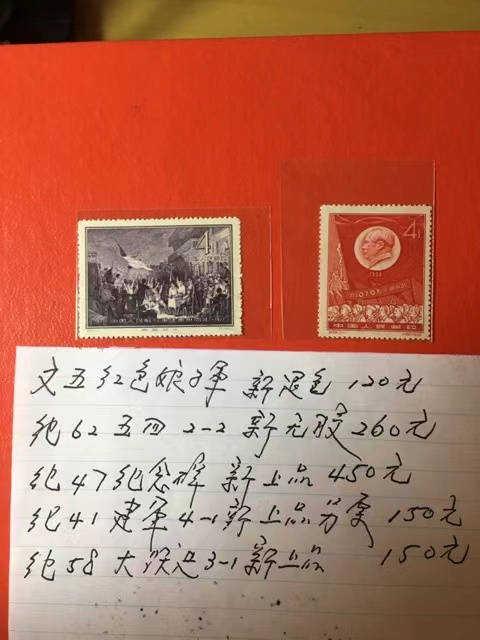 4
4
1958
中国人民邮政
文五 红色娘子軍 新退色 120元
纪62 五四 2-2 新无胶 260元
纪47 纪念碑 新上品 450元
纪41 建军 4-1 新上品 150元
纪58 大跃进 3-1 新上品 150元